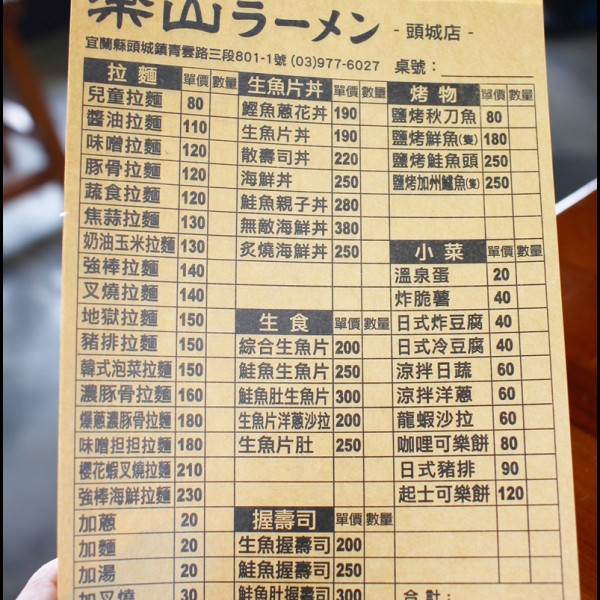 樂山ラーメン - 頭城店 -
宜蘭縣頭城鎮青雲路三段801-1號 (03)977-6027 桌號：
拉麵 單價 數量
兒童拉麵 80
醬油拉麵 110
味噌拉麵 120
豚骨拉麵 120
蔬食拉麵 120
焦蒜拉麵 130
奶油玉米拉麵 130
強棒拉麵 140
叉燒拉麵 140
地獄拉麵 150
豬排拉麵 150
韓式泡菜拉麵 150
濃豚骨拉麵 160
爆蔥濃豚骨拉麵 180
味噌担担拉麵 180
櫻花蝦叉燒拉麵 210
強棒海鮮拉麵 230
加蔥 20
加麵 20
加湯 20
加叉燒 30
生魚片丼 單價 數量
鰹魚蔥花丼 190
生魚片丼 190
散壽司丼 220
海鮮丼 250
鮭魚親子丼 280
無敵海鮮丼 380
炙燒海鮮丼 250
生食 單價 數量
綜合生魚片 200
鮭魚生魚片 250
鮭魚肚生魚片 300
生魚片洋蔥沙拉 200
生魚片肚 250
握壽司 單價 數量
生魚握壽司 200
鮭魚握壽司 250
鮭魚肚握壽司 300
烤物 單價 數量
鹽烤秋刀魚 80
鹽烤鮮魚(隻) 180
鹽烤鮭魚頭 250
鹽烤加州鱸魚(隻) 250
小菜 單價 數量
溫泉蛋 20
炸脆薯 40
日式炸豆腐 40
日式冷豆腐 40
涼拌日蔬 60
涼拌洋蔥 60
龍蝦沙拉 60
咖哩可樂餅 80
日式豬排 90
起士可樂餅 120
合計：